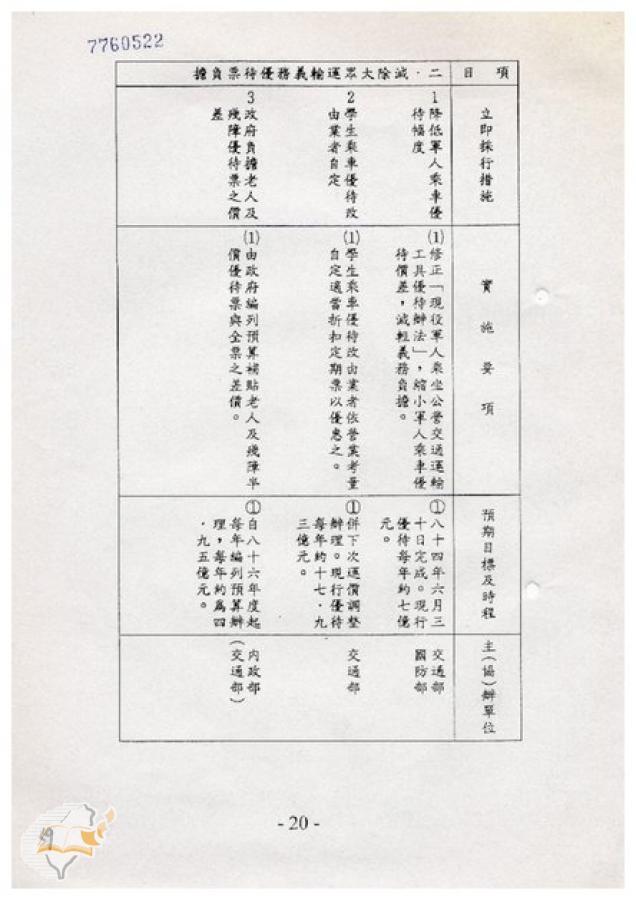 7760522
項目
二．減除大眾運輸義務優待票負擔
立即採行措施
1降低軍人乘車優
待幅度
2學生乘車優待改
由業者自定
3政府負擔老人及
殘障優待票之價
差
實施要項
(1)修正「現役軍人乘坐公營交通運輸
工具優待辦法」，縮小軍人乘車優
待價差，減輕義務負擔。
(1)學生乘車優待改由業者依營業考量
自定適當折扣定期票以優惠之。
(1)由政府編列預算補貼老人及殘障半
價優待票與全票之差價。
預期目標及時程
①八十四年六月三
十日完成。現行
優待每年約七億
元。
①併下次運價調整
辦理。現行優待
每年約十七．九
三億元。
①自八十六年度起
每年編列預算辦
理，每年約為四
．九五億元。
主（協）辦單位
交通部
國防部
交通部
內政部
（交通部）
- 20 -